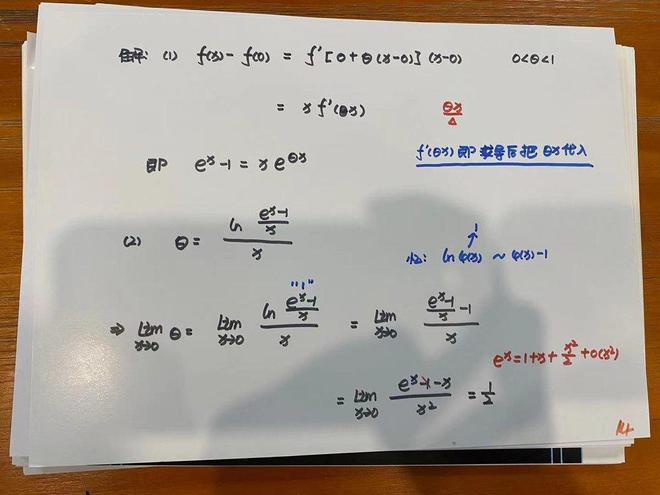 解: (1) f(x)-f(0) = f'[0+θ(x-0)](x-0) 0<θ<1
= x f'(θx) θx
f'(θx)即求导后把θx代入
即 e^x-1 = x e^{θx}
(2) θ = \frac{ln \frac{e^x-1}{x}}{x}
1
记: ln φ(x) ~ φ(x)-1
"1"
⇒ \lim_{x→0} θ = \lim_{x→0} \frac{ln \frac{e^x-1}{x}}{x} = \lim_{x→0} \frac{\frac{e^x-1}{x}-1}{x}
e^x=1+x+\frac{x^2}{2}+o(x^2)
= \lim_{x→0} \frac{e^x-1-x}{x^2} = \frac{1}{2}
14